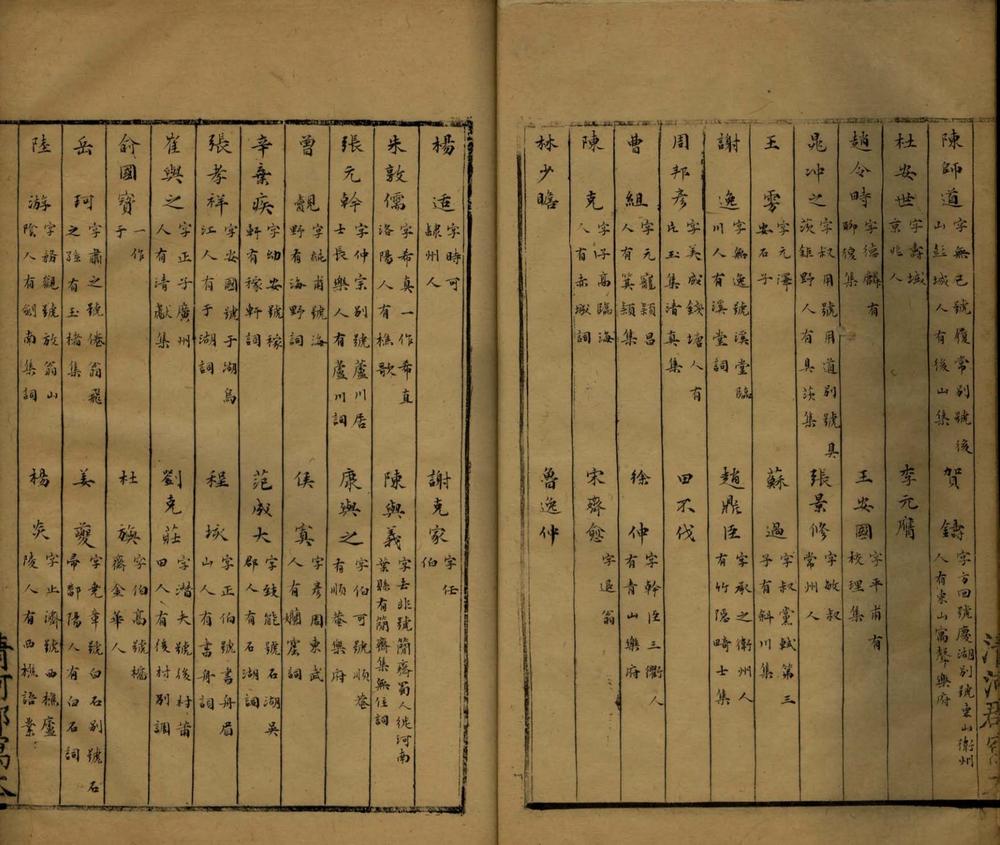 陳師道 字無己號履常別號後山彭城人有後山集
賀鑄 字方回號慶湖別號東山衞州人有東山寓聲樂府
杜安世 字壽域京兆人
李元膺
趙令畤 字德麟有聊復集
王安國 字平甫有校理集
晁冲之 字叔用號用道別號具茨鉅野人有具茨集
張景修 字敏叔常州人
王雱 字元澤安石子
蘇過 字叔黨軾第三子有斜川集
謝逸 字無逸號溪堂臨川人有溪堂詞
趙鼎臣 字承之衞州人有竹隱畸士集
周邦彥 字美成錢塘人有片玉集清真集
田不伐
曹組 字元寵潁昌人有箕潁集
徐伸 字幹臣三衢人有青山樂府
陳克 字子高臨海人有赤城詞
宋齊愈 字退翁
林少瞻
魯逸仲
楊适 字時可隸州人
謝克家 字任伯
朱敦儒 字希真一作希直洛陽人有樵歌
陳與義 字去非號簡齋蜀人徙河南葉縣有簡齋集無住詞
張元幹 字仲宗別號蘆川居士長樂人有蘆川詞
康與之 字伯可號順菴有順菴樂府
曾覿 字純甫號海野有海野詞
侯寘 字彥周東武人有嬾窟詞
辛棄疾 字幼安號稼軒有稼軒詞
范成大 字致能號石湖吳郡人有石湖詞
張孝祥 字安國號于湖烏江人有于湖詞
程垓 字正伯號書舟眉山人有書舟詞
崔與之 字正子廣州人有清獻集
劉克莊 字潛夫號後村莆田人有後村別調
俞國寶 一作于
杜旟 字伯高號橘齋金華人
岳珂 字肅之號倦翁飛之孫有玉楮集
姜夔 字堯章號白石別號石帚鄱陽人有白石詞
陸游 字務觀號放翁山陰人有劍南集詞
楊炎 字止濟號西樵廬陵人有西樵語業